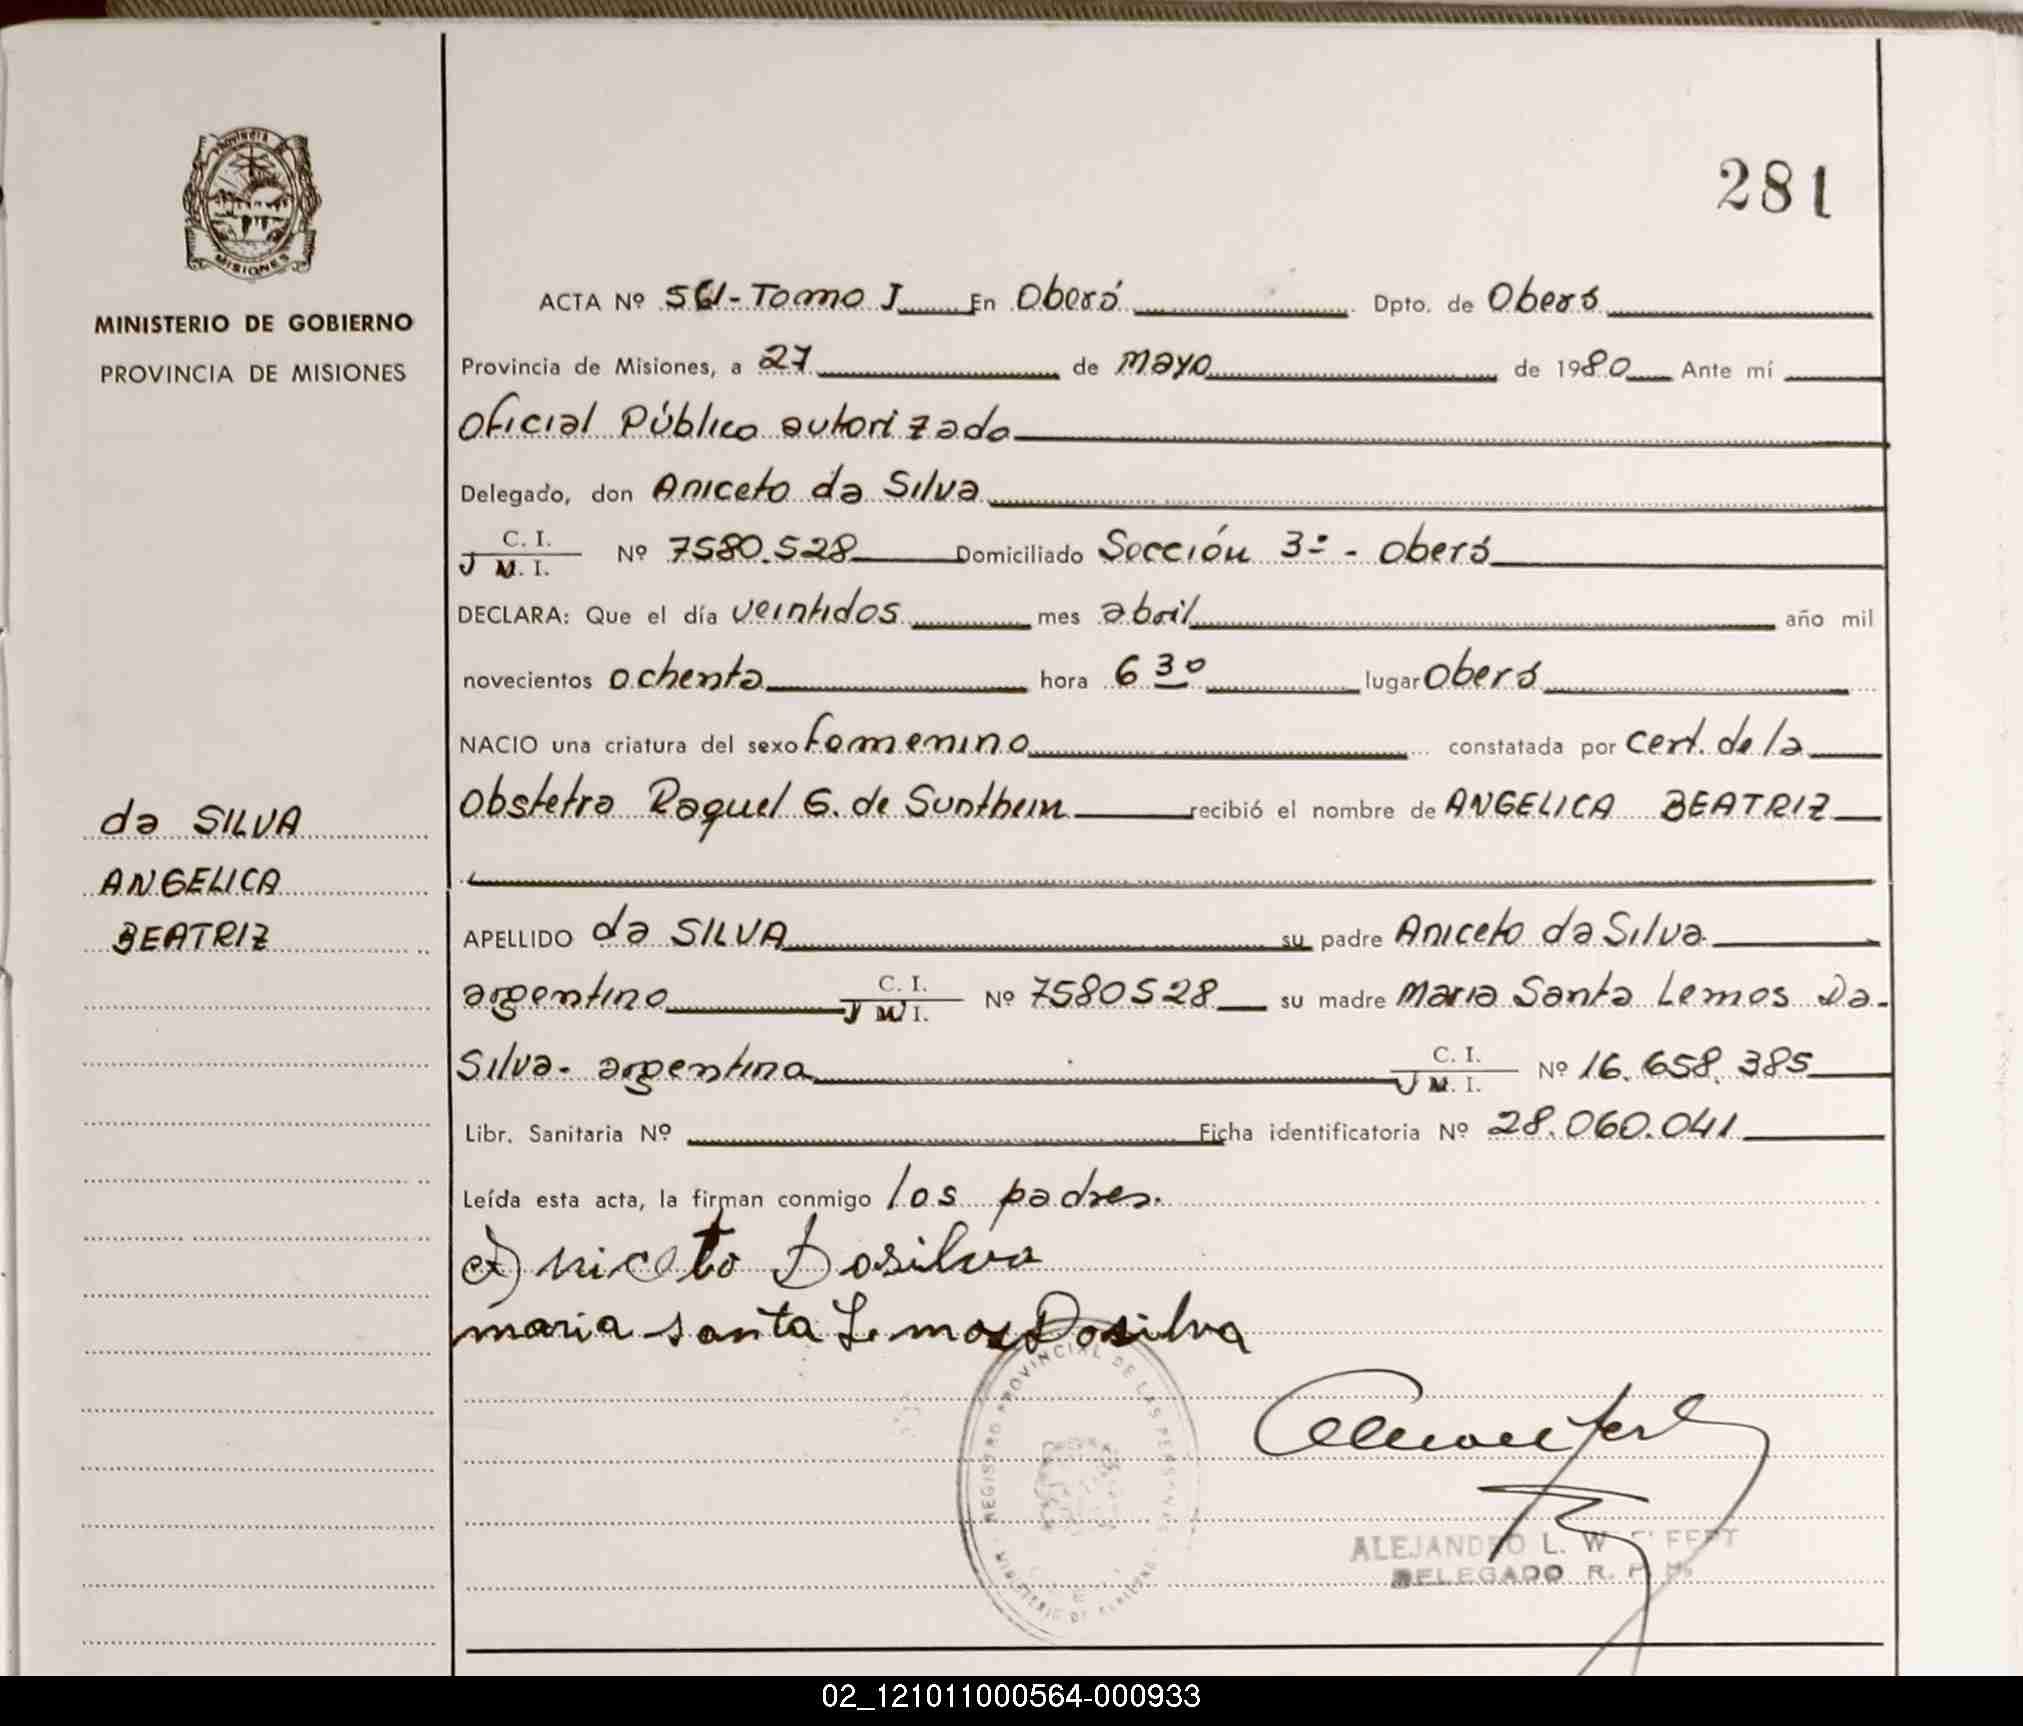 281
PROVINCIA
MISIONES
MINISTERIO DE GOBIERNO
PROVINCIA DE MISIONES
ACTA Nº 561-Tomo I En Oberá Dpto. de Oberá
Provincia de Misiones, a 27 de mayo de 1980 Ante mí
Oficial Público autorizado
Delegado, don Aniceto da Silva
C. I.
M. I. Nº 7580.528 Domiciliado Sección 3ª - Oberá
DECLARA: Que el día veintidos mes abril año mil
novecientos ochenta hora 6 30 lugar Oberá
NACIO una criatura del sexo femenino constatada por cert. de la
Obstetra Raquel G. de Sunthein recibió el nombre de ANGELICA BEATRIZ
da SILVA
ANGELICA
BEATRIZ
APELLIDO da SILVA su padre Aniceto da Silva
argentino C. I. M. I. Nº 7580528 su madre Maria Santa Lemos Da-
Silva- argentina C. I. M. I. Nº 16.658.385
Libr. Sanitaria Nº Ficha identificatoria Nº 28.060.041
Leída esta acta, la firman conmigo los padres.
Aniceto Dasilva
maria santa Lemos Dasilva
REGISTRO PROVINCIAL DE LAS PERSONAS
MINISTERIO DE
ALEJANDRO L.
DELEGADO R. P.
02_121011000564-000933